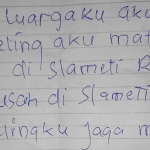 luargaku aku
eting aku mat
di slameti R
usah di Slameti
lingku jaga m